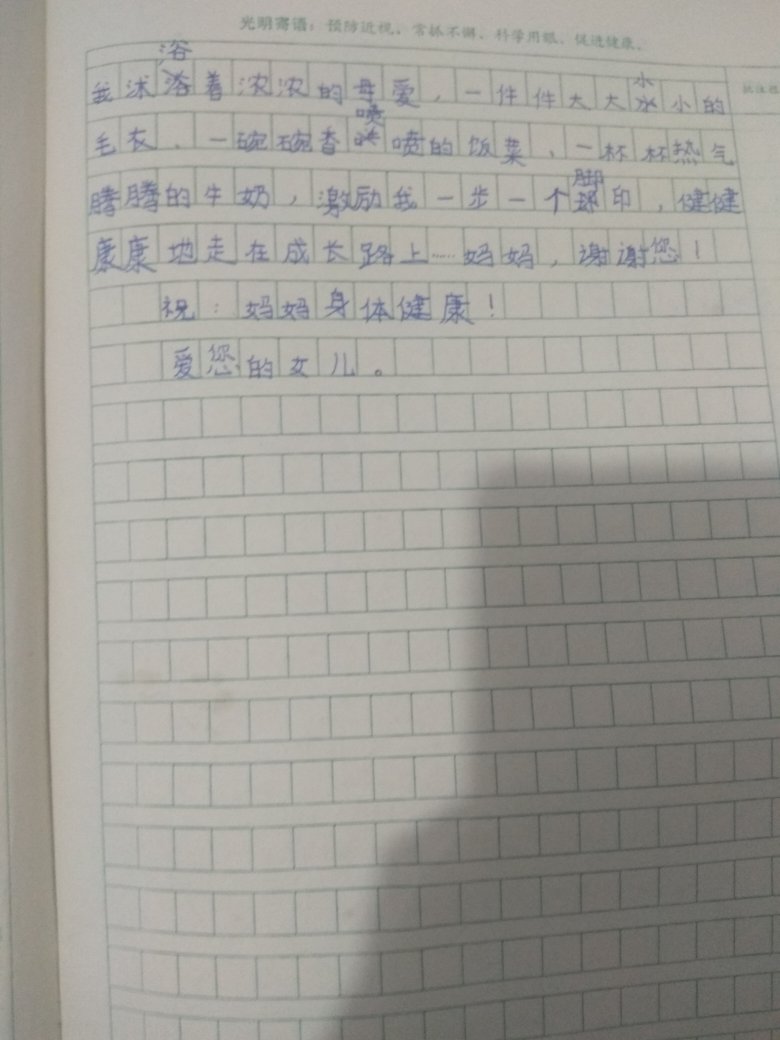 光明寄语：预防近视，常抓不懈，科学用眼，促进健康。
我沐浴着浓浓的母爱，一件件大大小小的
毛衣，一碗碗香喷喷的饭菜，一杯杯热气
腾腾的牛奶，激励我一步一个脚印，健健
康康地走在成长路上……妈妈，谢谢您！
祝：妈妈身体健康！
爱您的女儿。